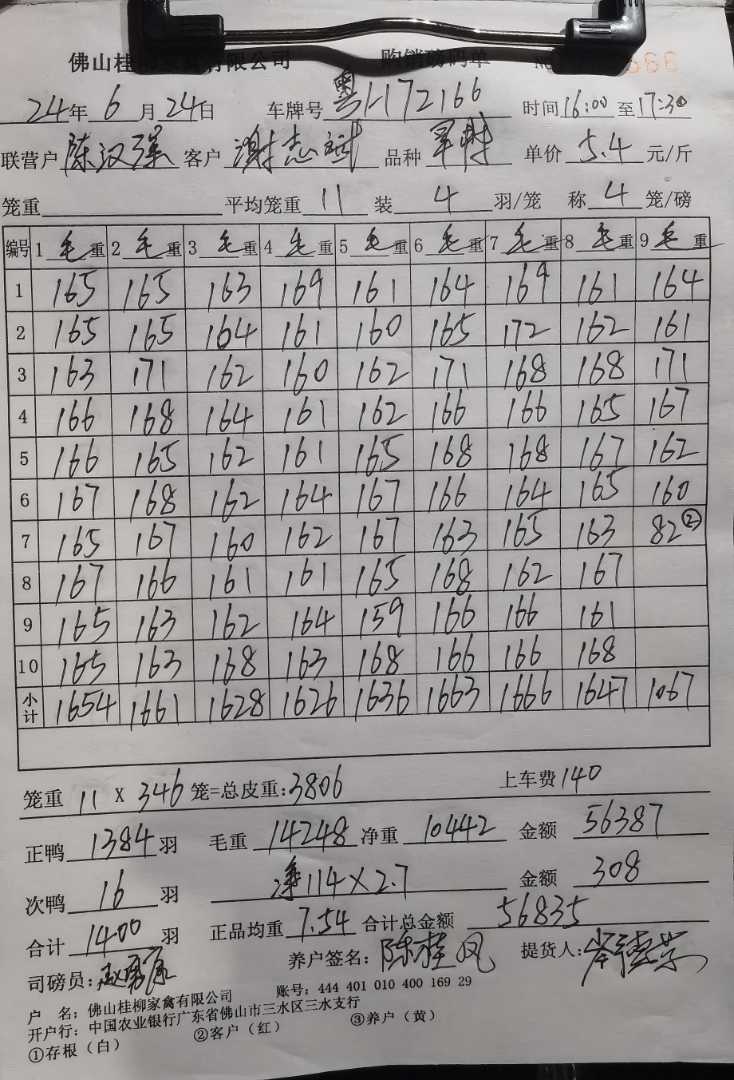 佛山桂柳家禽有限公司 购销磅码单 666
24年 6月 24日 车牌号 粤H172166 时间 16:00 至 17:30
联营户 陈汉强 客户 谢志 品种 单价 5.4 元/斤
笼重 平均笼重 11 装 4 羽/笼 称 4 笼/磅
编号 1 毛重 2 毛重 3 毛重 4 毛重 5 毛重 6 毛重 7 毛重 8 毛重 9 毛重
1 165 165 163 169 161 164 169 161 164
2 165 165 164 161 160 165 172 162 161
3 163 171 162 160 162 171 168 168 171
4 166 168 164 161 162 166 166 165 167
5 166 165 162 161 165 168 168 167 162
6 167 168 162 164 167 166 164 165 160
7 165 167 160 162 167 163 165 163 82②
8 167 166 161 161 165 168 162 167
9 165 163 162 164 159 166 166 161
10 165 163 168 163 168 166 166 168
小计 1654 1661 1628 1626 1636 1663 1666 1647 1067
笼重 11 X 346 笼=总皮重:3806 上车费 140
正鸭 1384 羽 毛重 14248 净重 10442 金额 56387
次鸭 16 羽 净114×2.7 金额 308
合计 1400 羽 正品均重 7.54 合计总金额 56835
司磅员: 养户签名: 陈桂凤 提货人:
户 名: 佛山桂柳家禽有限公司 账号: 444 401 010 400 169 29
开户行: 中国农业银行广东省佛山市三水区三水支行
①存根(白) ②客户(红) ③养户(黄)